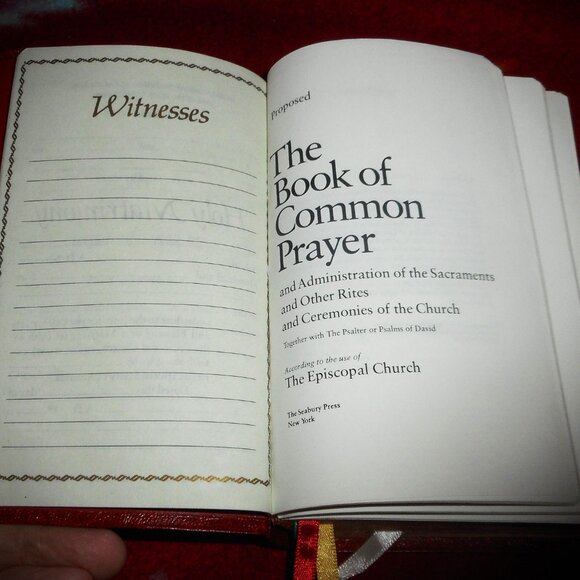 Witnesses
Proposed
The
Book of
Common
Prayer
and Administration of the Sacraments
and Other Rites
and Ceremonies of the Church
Together with The Psalter or Psalms of David
According to the use of
The Episcopal Church
The Seabury Press
New York